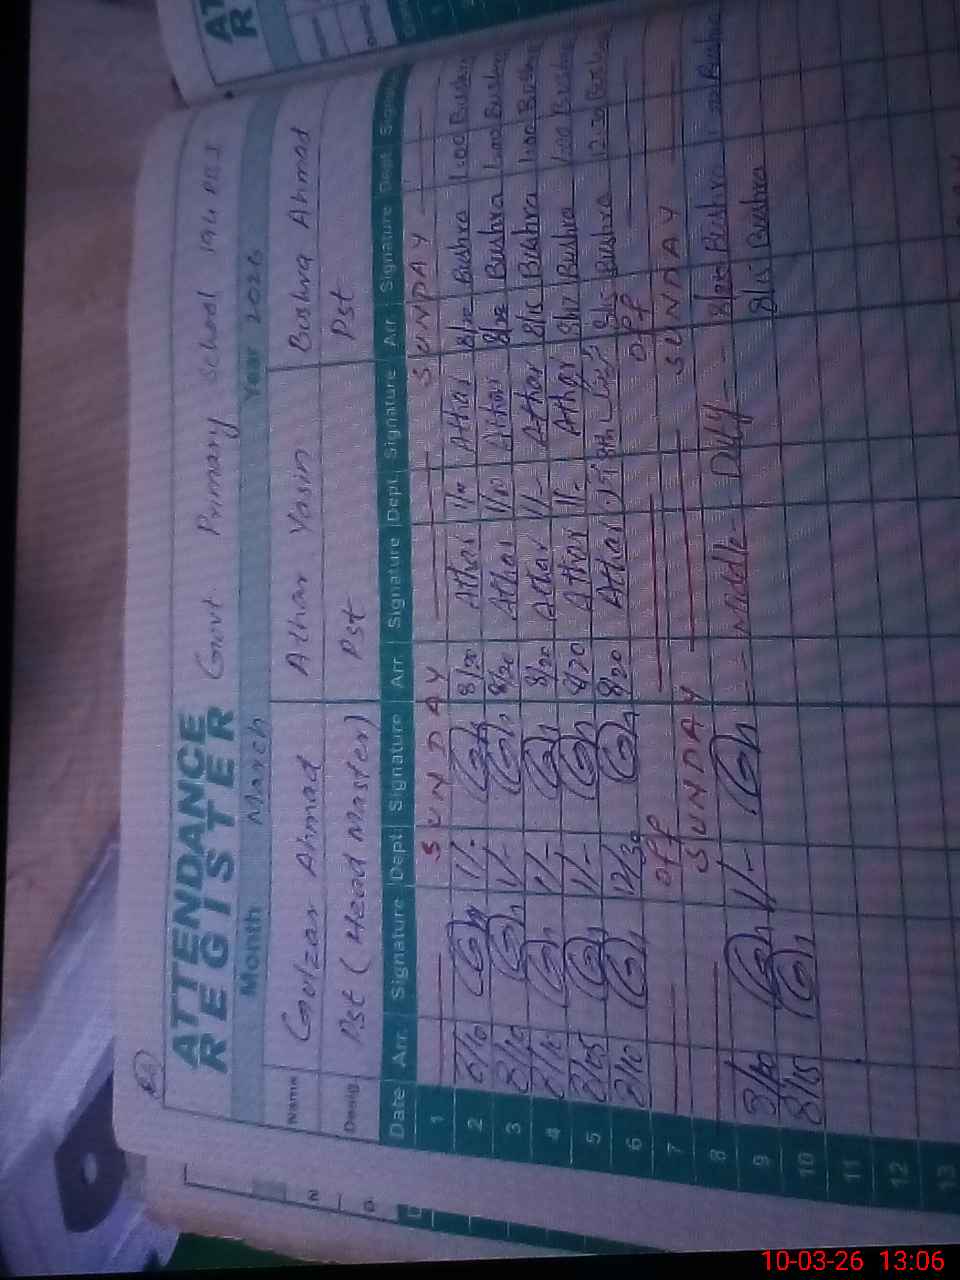 ATTENDANCE REGISTER
Govt. Primary School 194
Month March Year 2026
Name Gulzar Ahmad Athar Yasin Bushra Ahmad
Desig. Pst (Head Master) Pst Pst
Date Arr. Signature Dept. Signature Arr. Signature Dept. Signature Arr. Signature Dept. Signature
1 SUNDAY SUNDAY
2 8/10 1/- 8/20 Athar 1/00 Athar Bushra 1:00 Bushra
3 8/10 1/- 8/20 Athar 1/00 Athar Bushra 1:00 Bushra
4 8/10 1/- 8/20 Athar 1/- Athar 8/15 Bushra 1:00 Bushra
5 8/05 1/- 8/20 Athar 1/- Athar 8/17 Bushra 1:00 Bushra
6 8/10 12/30 8/20 Athar 8/15 Bushra 12:30 Bushra
7 Off Off
8 SUNDAY SUNDAY
9 8/10 1/- Middle Duty Bushra Bushra
10 8/15 8/15 Bushra
11
12
13
10-03-26 13:06